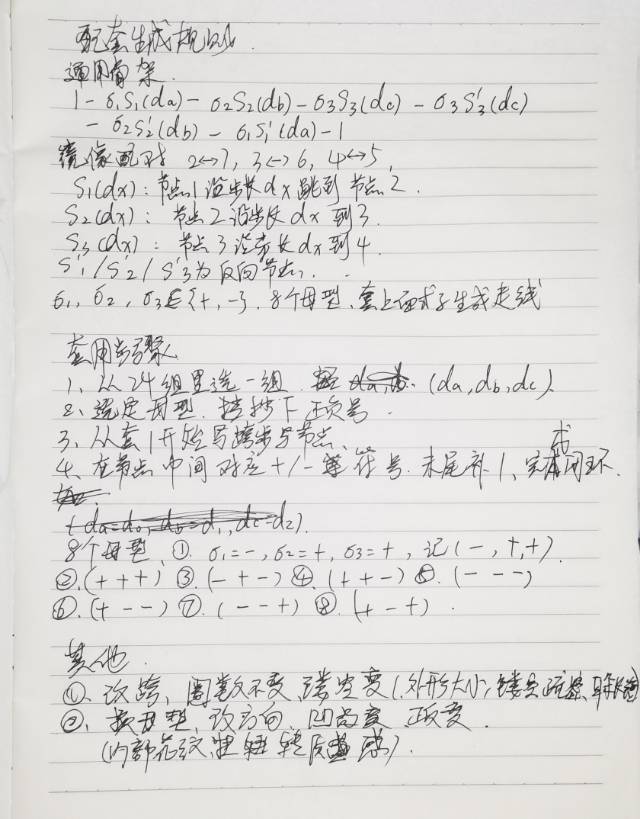 配套生成规则.
通用骨架.
1 - σ₁S₁(da) - σ₂S₂(db) - σ₃S₃(dc) - σ₃S₃'(dc)
- σ₂S₂'(db) - σ₁S₁'(da) - 1
镜像配对 2↔7, 3↔6, 4↔5,
S₁(dx): 节点1沿步长dx跳到节点2.
S₂(dx): 节点2沿步长dx到3.
S₃(dx): 节点3沿步长dx到4.
S'₁/S'₂/S'₃为反向节点.
σ₁, σ₂, σ₃∈{+, -}. 8个母型、套上面式子生成走线
套用步骤
1、从24组里选一组 (da,db,dc).
2、选定母型. 下正负号.
3、从套1开始写跨步与节点、
4、在节点中间对应+/-符号. 末尾补1、完成闭环.
(da=d₀, db=d₁, dc=d₂).
8个母型、①. σ₁=-, σ₂=+, σ₃=+, 记(-,+,+).
②.(+++) ③.(-+-) ④.(++-) ⑤.(---)
⑥.(+--) ⑦.(--+) ⑧.(+-+).
其他.
①、改跨、圈数不变、镂空变(外形大小,镂空疏密、)
②、换母型、改方向、凹凸变 正反变.
(内部花纹, 扭转反感).